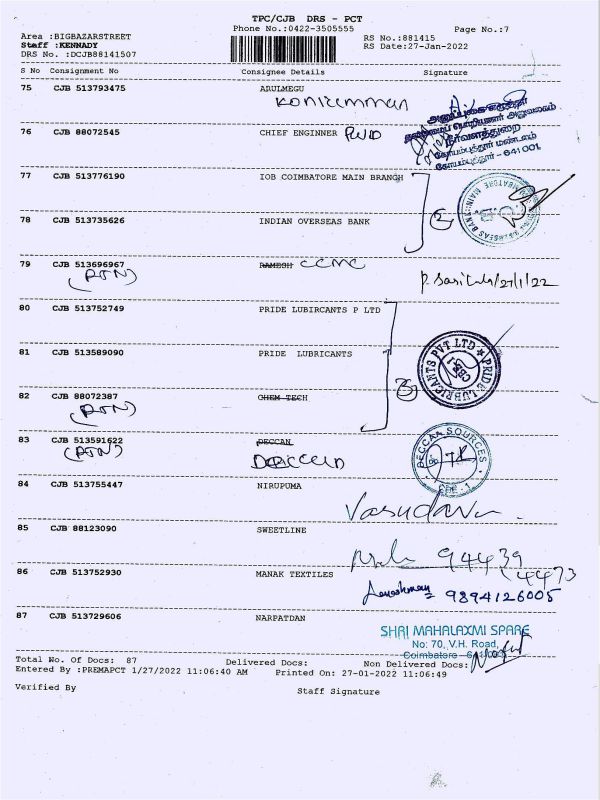 TPC/CJB DRS - PCT
Phone No.:0422-3505555 Page No.:7
Area :BIGBAZARSTREET RS No.:881415
Staff :KENNADY RS Date:27-Jan-2022
DRS No. :DCJB88141507
S No Consignment No Consignee Details Signature
75 CJB 513793475 ARULMEGU
Koniamman
76 CJB 88072545 CHIEF ENGINNER PWD
நீர்வளத்துறை
கோயம்புத்தூர் மண்டலம்
கோயம்புத்தூர் - 641 001.
77 CJB 513776190 IOB COIMBATORE MAIN BRANGH
2
78 CJB 513735626 INDIAN OVERSEAS BANK
79 CJB 513696967 RAMESH CCMC
(RTN) P. Saritula/27/1/22
80 CJB 513752749 PRIDE LUBIRCANTS P LTD
81 CJB 513589090 PRIDE LUBRICANTS
PRIDE LUBRICANTS PVT LTD ★ CBE-1
82 CJB 88072387 CHEM TECH
(RTN) 3
83 CJB 513591622 DECCAN
(RTN) DECCAN
DECCAN SOURCES
CBE - 1
84 CJB 513755447 NIRUPUMA
Vasudavn
85 CJB 88123090 SWEETLINE
94439
86 CJB 513752930 MANAK TEXTILES 44773
9894126005
87 CJB 513729606 NARPATDAN
SHRI MAHALAXMI SPARE
No: 70, V.H. Road,
Coimbatore - 641 001
Total No. Of Docs: 87 Delivered Docs: Non Delivered Docs:
Entered By :PREMAPCT 1/27/2022 11:06:40 AM Printed On: 27-01-2022 11:06:49
Verified By Staff Signature